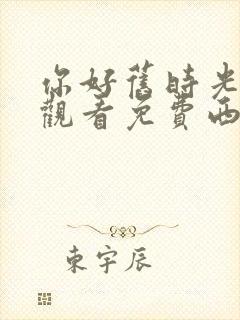 你好舊時光
觀看免費西
東宇辰